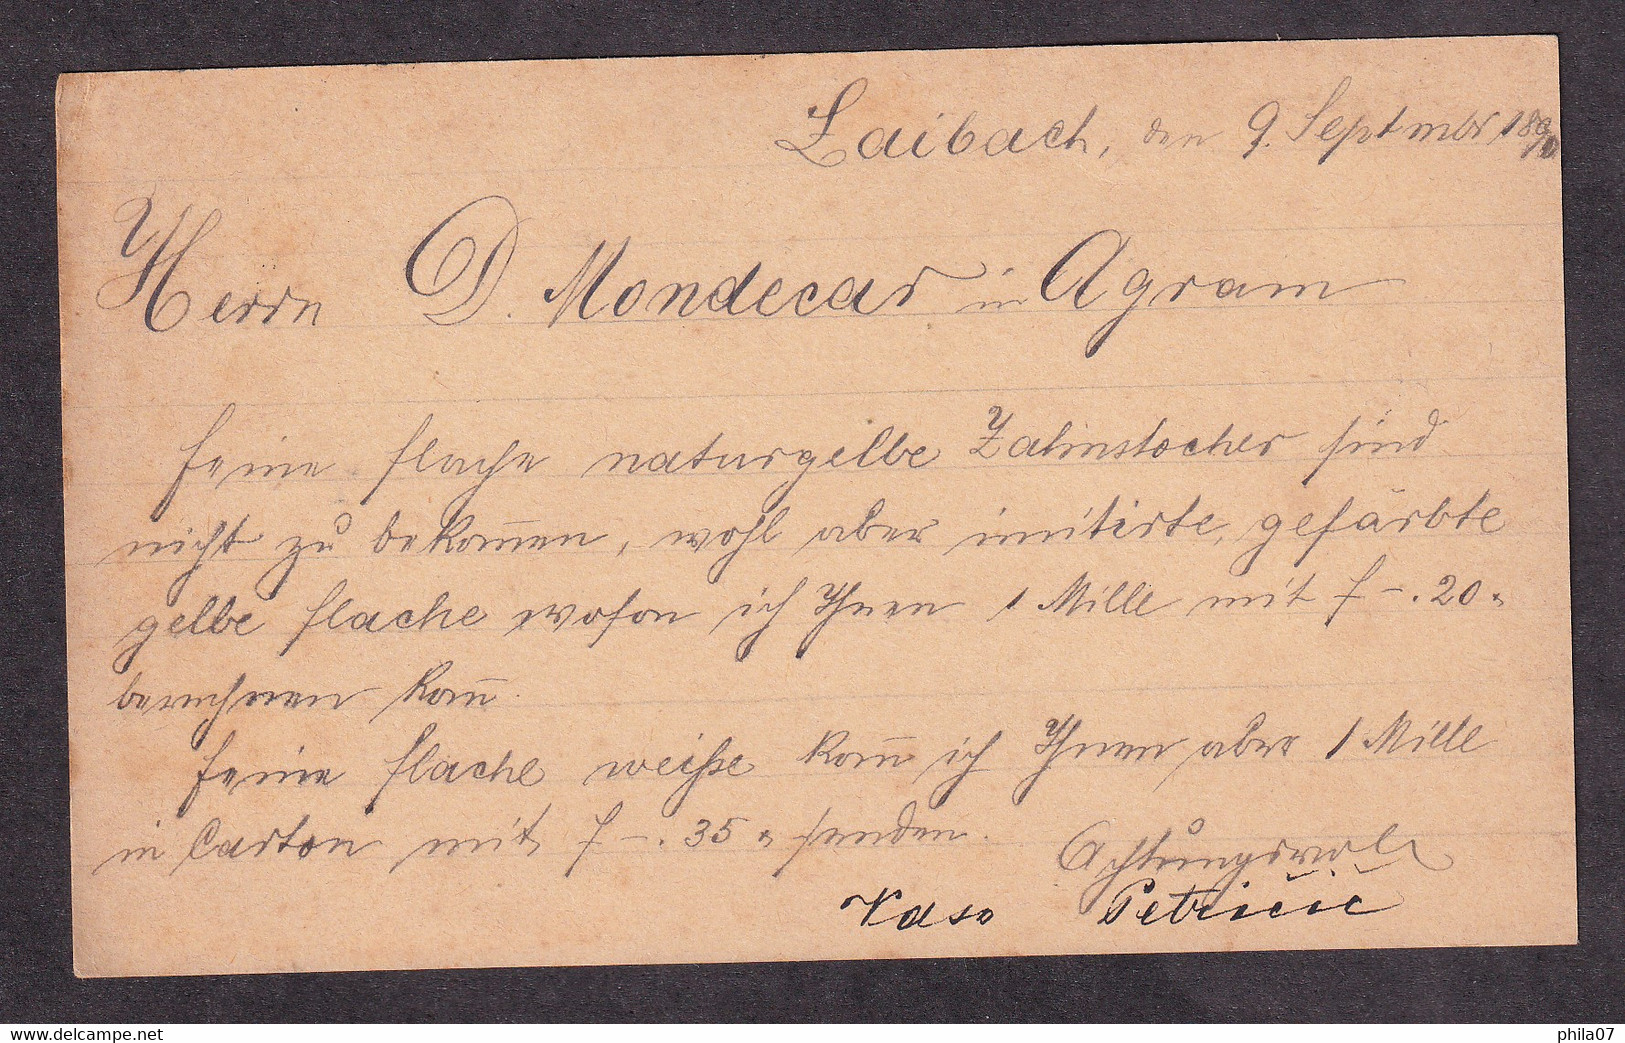 Laibach, den 9. Septmbr 1890
Herrn D. Mondecar in Agram
Feine flache naturgelbe Zahnstocher sind
nicht zu bekom̄en, wohl aber imitirte, gefärbte
gelbe flache wofon ich Ihnen 1 Mille mit f -.20
berechnen kan̄.
Feine flache weiße kan̄ ich Ihnen aber 1 Mille
in Carton mit f -.35 senden.
Achtungsvoll
Vaso Petričić
www.delcampe.net
phila07